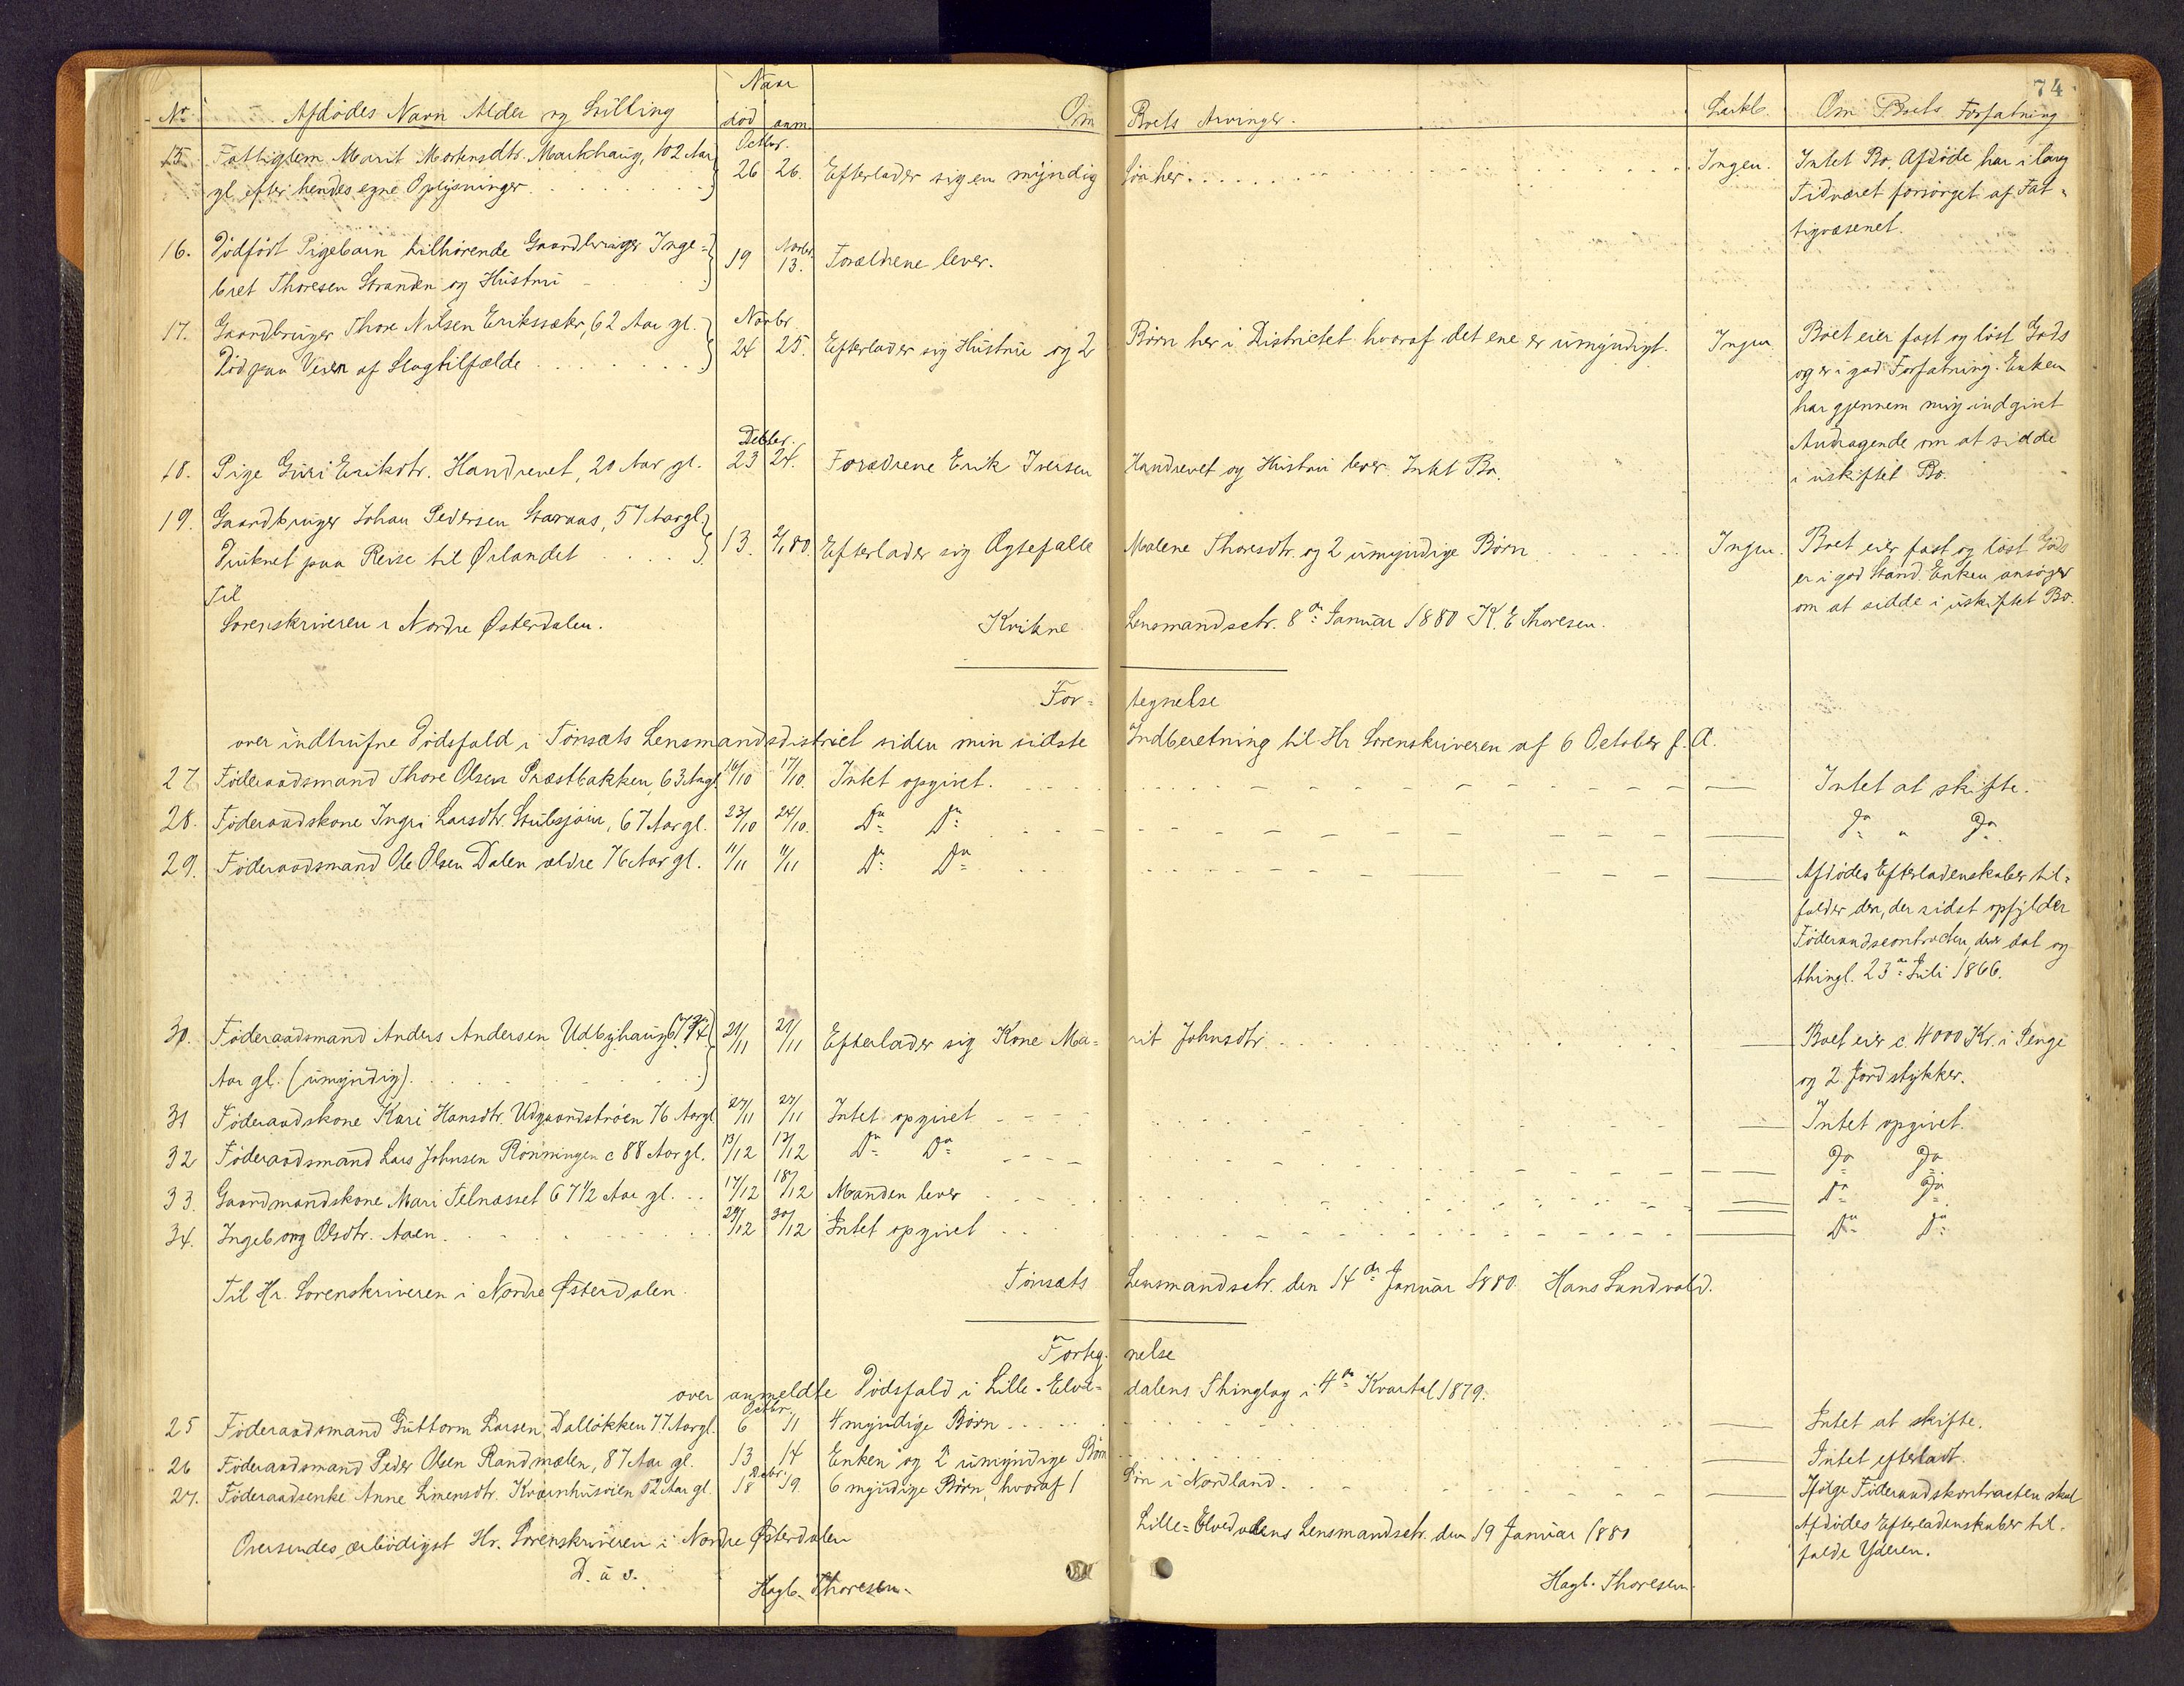 74
Naar
No Afdödes Navn Alder og Stilling död anm. Om Boets Arvinger. Særkb. Om Boets Forfatning
15. Fattiglem Marit Mortensdtr. Markhaug, 102 Aar Octbr. 26 26. Efterlader sig en myndig Sön her. Ingen. Intet Bo. Afdöde har i lang
gl. efter hendes egne Oplysninger Tid været forsörget af Fat-
tigvæsenet.
16. Dödfödt Pigebarn tilhörende Gaardbruger Inge- 19 Novbr. 13. Forældrene lever.
bret Thoresen Stranden og Hustru
17. Gaardbruger Thore Nilsen Erikssæter, 62 Aar gl. Novbr. 24 25. Efterlader sig Hustru og 2 Börn her i Districtet hvoraf det ene er umyndigt. Ingen Boet eier fast og löst Gods
Död paa Veien af Slagtilfælde og er i god Forfatning. Enken
har gjennem mig indgivet
Andragende om at sidde
i uskiftet Bo.
18. Pige Guri Eriksdtr. Handrevet, 20 Aar gl. Decbr. 23 24. Forældrene Erik Iversen Handrevet og Hustru lever. Intet Bo.
19. Gaardbruger Johan Pedersen Stavaas, 57 Aar gl. 13. 2/1 80. Efterlader sig Ægtefælle Malene Thoresdtr. og 2 umyndige Börn Ingen. Boet eier fast og löst Gods
Druknet paa Reise til Ørlandet er i god Stand. Enken ansöger
om at sidde i uskiftet Bo.
Til
Sorenskriveren i Nordre Østerdalen. Kvikne Lensmandsctr. 8de Januar 1880 K. E Thoresen.
For- tegnelse
over indtrufne Dödsfald i Tönsets Lensmandsdistrict siden min sidste Indberetning til Hr Sorenskriveren af 6 October f. A.
27. Föderaadsmand Thore Olsen Præstbakken, 63 Aar gl. 16/10 17/10. Intet opgivet. Intet at skifte.
28. Föderaadskone Ingri Larsdtr. Stubsjöen, 67 Aar gl. 23/10 24/10. Do Do Do " Do
29. Föderaadsmand Ole Olsen Dalen ældre 76 Aar gl. 11/11 11/11 Do Do Afdödes Efterladenskaber til-
falder den, der sidst opfylder
Föderaadscontracten, der er dat og
thingl. 23de Juli 1866.
30. Föderaadsmand Anders Andersen Udbyhaug 67 3/4 21/11 21/11 Efterlader sig Kone Ma- rit Johnsdtr. Boet eier c. 4000 Kr. i Penge
Aar gl. (umyndig). og 2 Jordstykker.
31 Föderaadskone Kari Hansdtr. Udgaardströen 76 Aar gl 27/11 27/11 Intet opgivet Intet opgivet.
32 Föderaadsmand Lars Johnsen Rönningen c 88 Aar gl. 13/12 13/12 Do Do Do Do
33. Gaardmandskone Mari Telnesset 67 1/2 Aar gl. 17/12 18/12 Manden lever Do Do
34. Ingeborg Olsdtr. Aaen. 29/12 30/12 Intet opgivet Do Do
Til Hr. Sorenskriveren i Nordre Østerdalen. Tönsets Lensmandsctr. den 14de Januar 1880. Hans Sundvold.
Forteg- nelse
over anmeldte Dödsfald i Lille-Elve- dalens Thinglag i 4de Kvartal 1879.
25 Föderaadsmand Guttorm Larsen, Dallökken 77 Aar gl. Octbr. 6 11 4 myndige Börn Intet at skifte.
26 Föderaadsmand Peder Olsen Randmælen, 87 Aar gl. 13 14 Enken og 2 umyndige Börn Intet efterladt.
27. Föderaadsenke Anne Simensdtr. Kværnhusöien 52 Aar gl. Decbr. 18 19. 6 myndige Börn, hvoraf 1 Sön i Nordland. Ifölge Föderaadskontracten skal
Afdödes Efterladenskaber til-
falde Yderen.
Oversendes ærbödigst Hr. Sorenskriveren i Nordre Østerdalen Lille-Elvedalens Lensmandsctr. den 19 Januar 1880
D. u. s.
Hagb. Thoresen. Hagb. Thoresen.